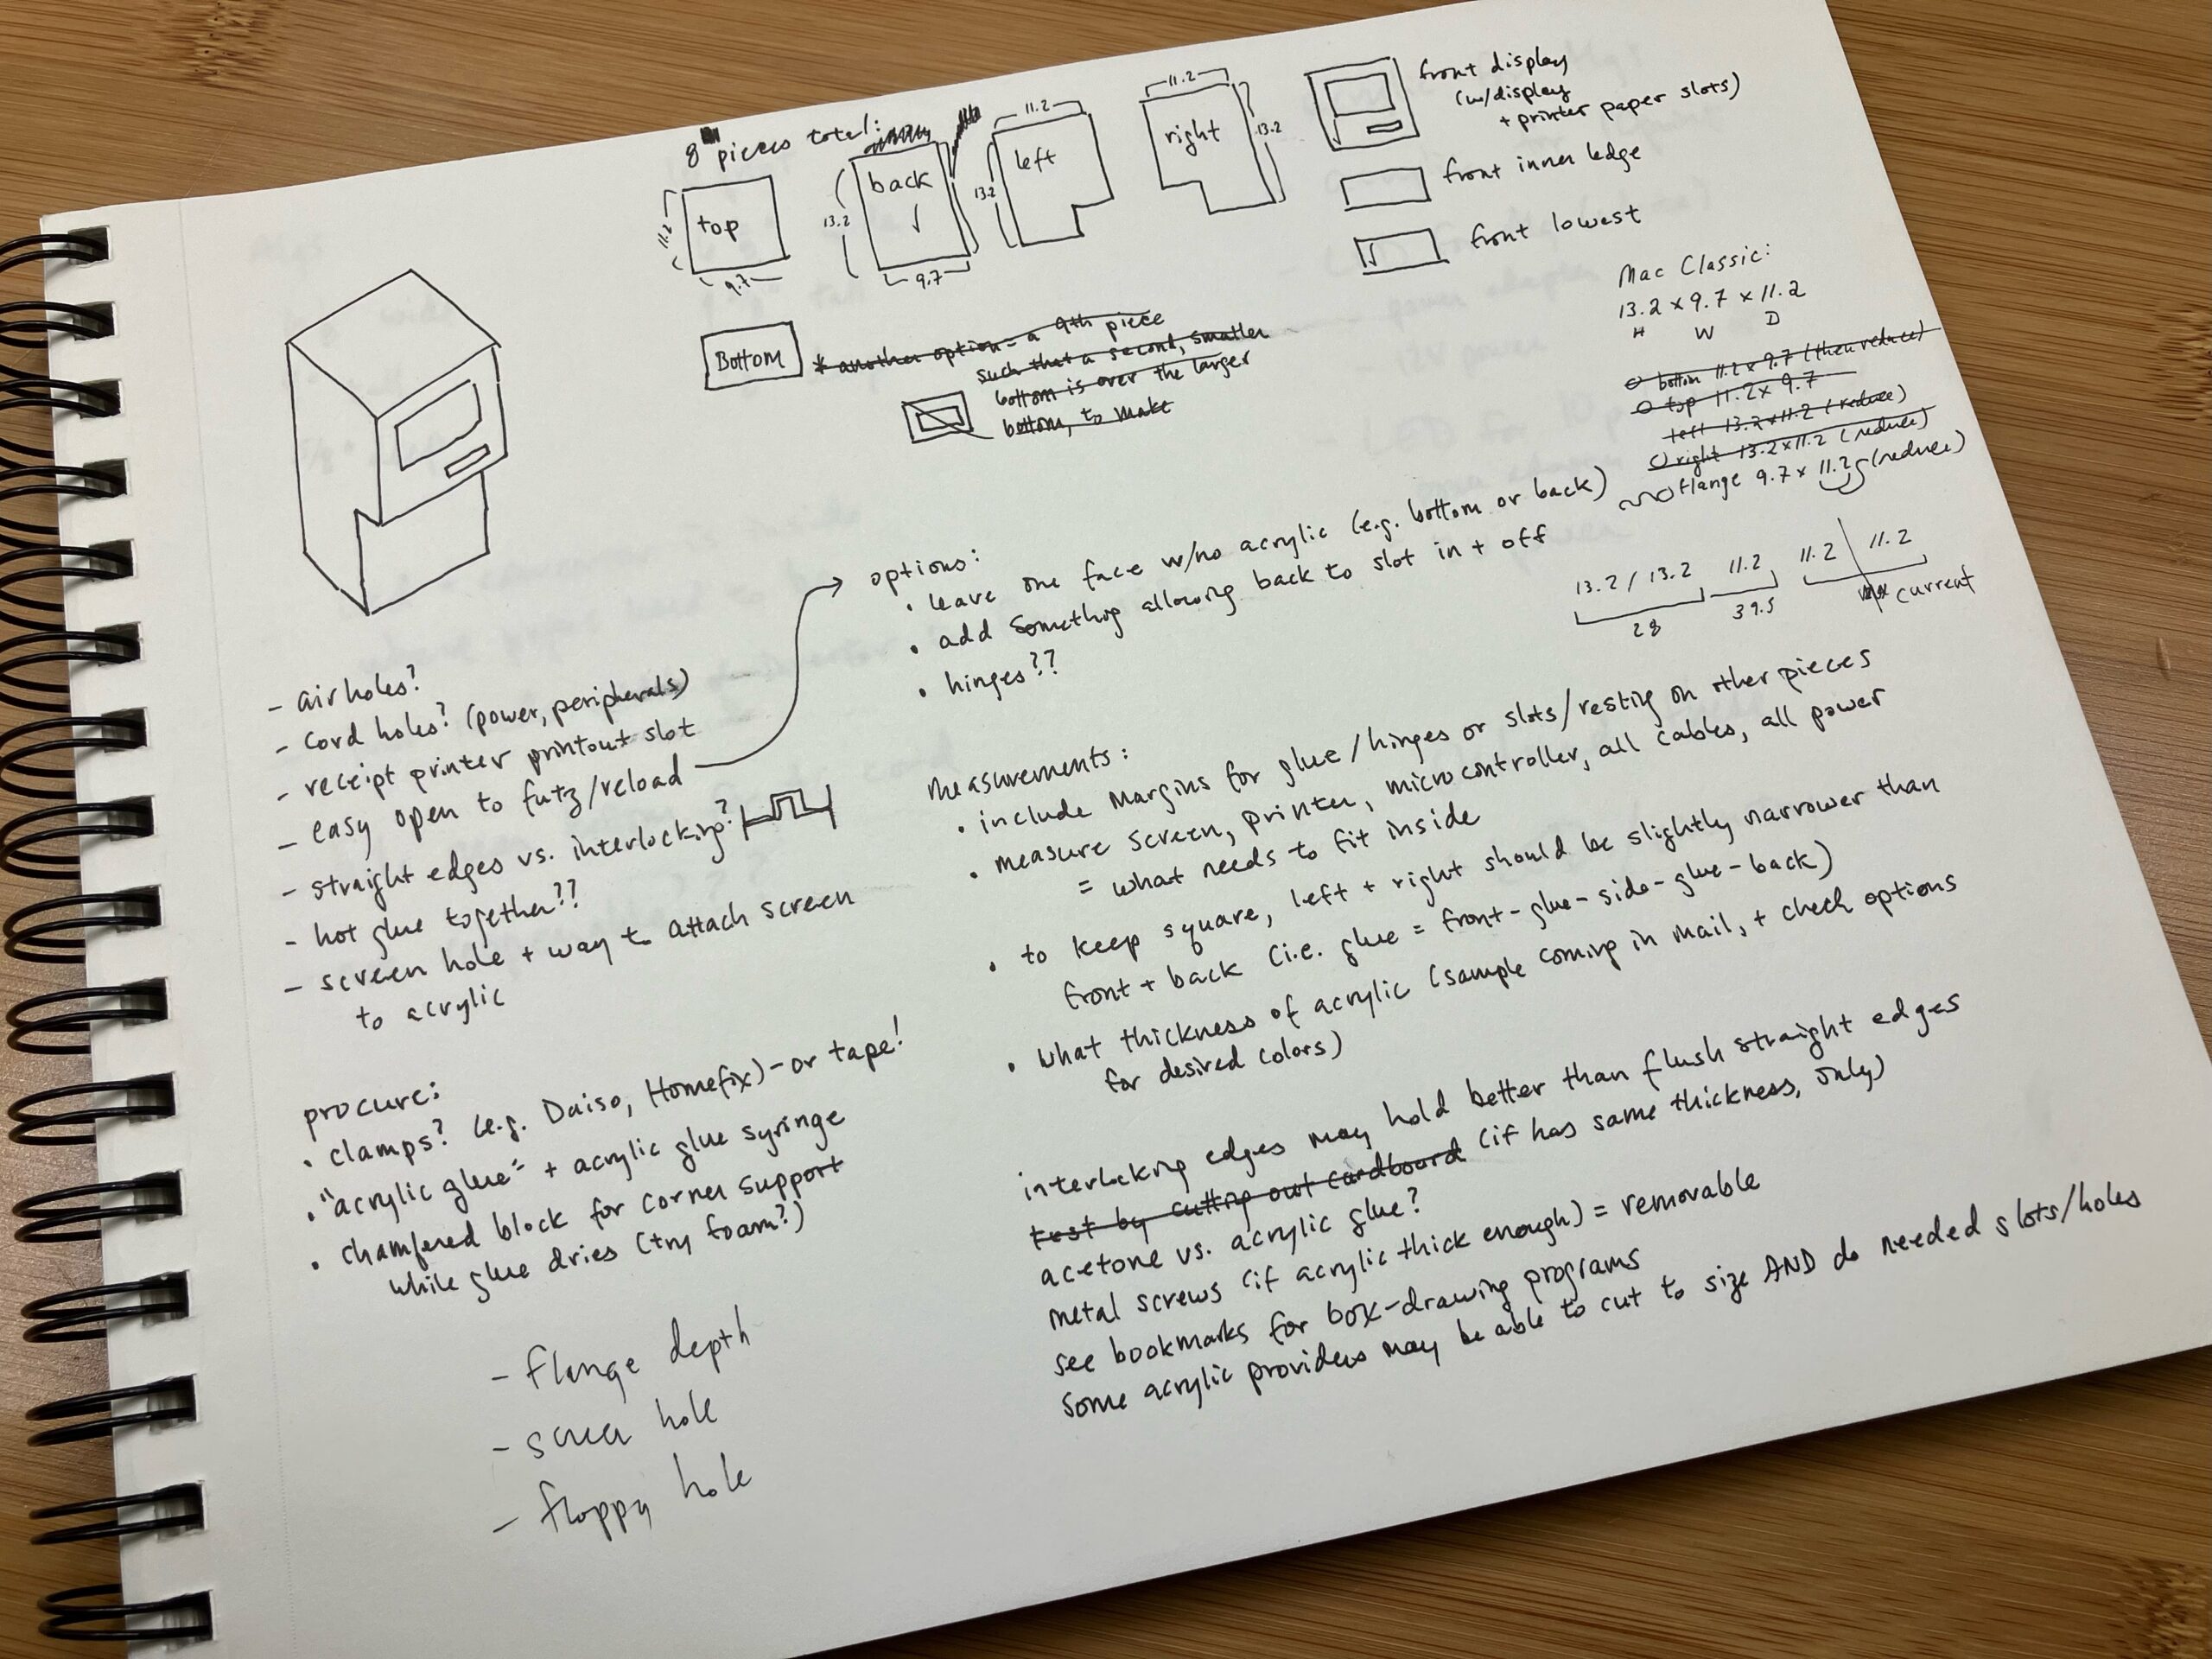 8 pieces total:
top
11.2
9.7
back
13.2
9.7
left
11.2
13.2
right
11.2
13.2
front display
(w/display
+ printer paper slots)
front inner ledge
front lowest
Bottom
* another option = a 9th piece
such that a second, smaller
bottom is over the larger
bottom, to make
Mac Classic:
13.2 x 9.7 x 11.2
H W D
bottom 11.2 x 9.7 (then reduce)
top 11.2 x 9.7
left 13.2 x 11.2 (reduce)
right 13.2 x 11.2 (reduce)
flange 9.7 x 11.2 (reduce)
13.2 / 13.2 11.2 11.2 11.2
28 39.5 current
- airholes?
- cord holes? (power, peripherals)
- receipt printer printout slot
- easy open to futz/reload
- straight edges vs. interlocking?
- hot glue together??
- screen hole + way to attach screen
to acrylic
options:
• leave one face w/no acrylic (e.g. bottom or back)
• add something allowing back to slot in + off
• hinges??
measurements:
• include margins for glue/hinges or slots/resting on other pieces
• measure screen, printer, microcontroller, all cables, all power
= what needs to fit inside
• to keep square, left + right should be slightly narrower than
front + back (i.e. glue = front-glue-side-glue-back)
• what thickness of acrylic (sample coming in mail, + check options
for desired colors)
procure:
• clamps? (e.g. Daiso, Homefix) - or tape!
• "acrylic glue" + acrylic glue syringe
• chamfered block for corner support
while glue dries (try foam?)
interlocking edges may hold better than flush straight edges
test by cutting out cardboard (if has same thickness, only)
acetone vs. acrylic glue?
metal screws (if acrylic thick enough) = removable
see bookmarks for box-drawing programs
some acrylic providers may be able to cut to size AND do needed slots/holes
- flange depth
- screen hole
- floppy hole